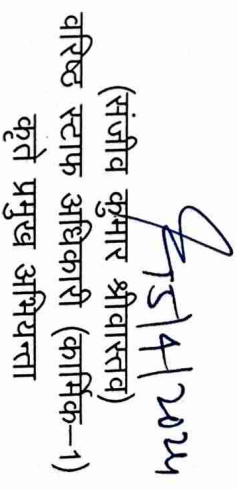 5/4/2024
(संजीव कुमार श्रीवास्तव)
वरिष्ठ स्टाफ अधिकारी (कार्मिक-1)
कृते प्रमुख अभियन्ता